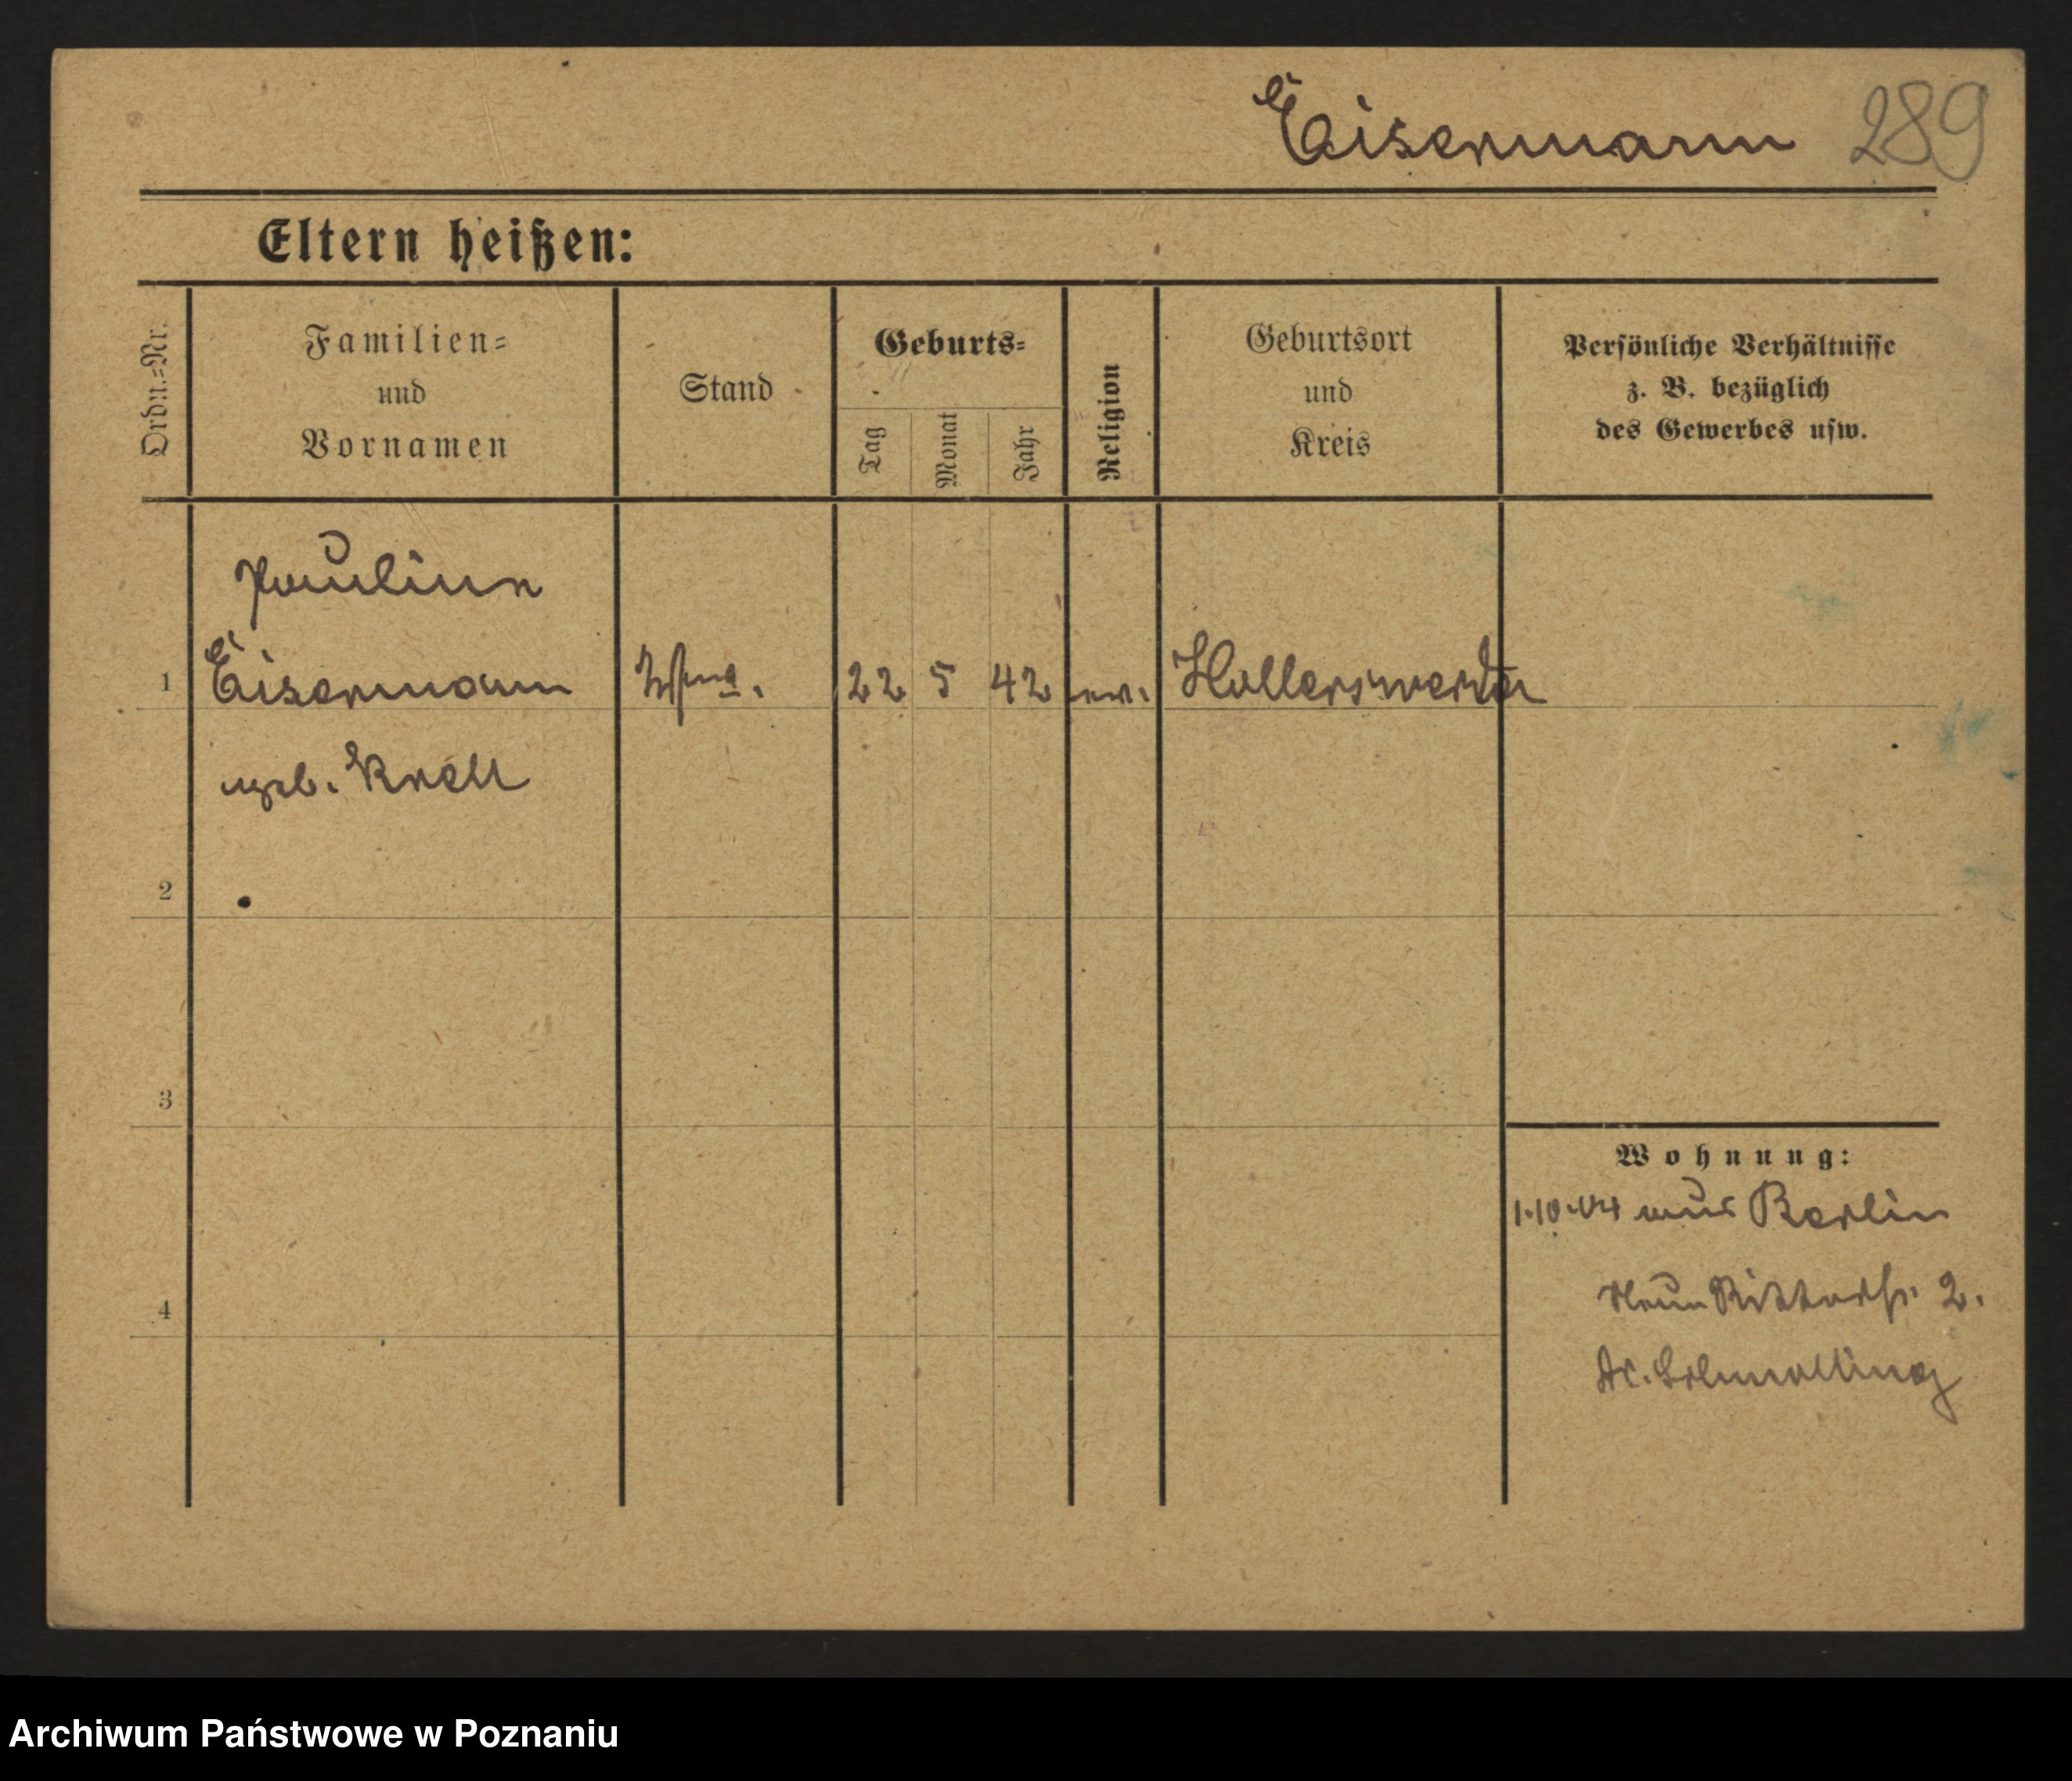 Eisermann 289
Eltern heißen:
Ordn.-Nr.
Familien-
und
Vornamen
Stand
Geburts-
Tag
Monat
Jahr
Religion
Geburtsort
und
Kreis
Persönliche Verhältnisse
z. B. bezüglich
des Gewerbes usw.
Pauline
1 Eisermann 22 5 42 ev. Hollerswerda
geb. Krell
2
3
Wohnung:
1.10.04 aus Berlin
4
Neue Ritterstr. 2.
Schmolling
Archiwum Państwowe w Poznaniu